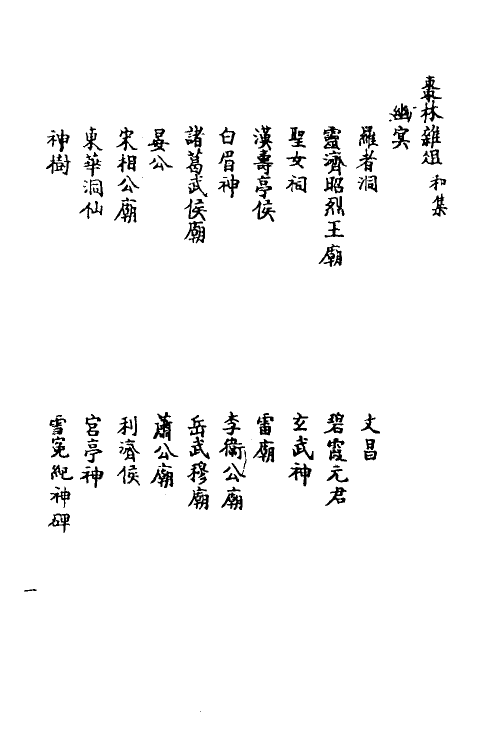 棗林雜俎 和集
幽冥
羅者洞
文昌
靈濟昭烈王廟
碧霞元君
聖女祠
玄武神
漢壽亭侯
雷廟
白眉神
李衛公廟
諸葛武侯廟
岳武穆廟
晏公
蕭公廟
宋相公廟
利濟侯
東華洞仙
宮亭神
神樹
雪冤紀神碑
一